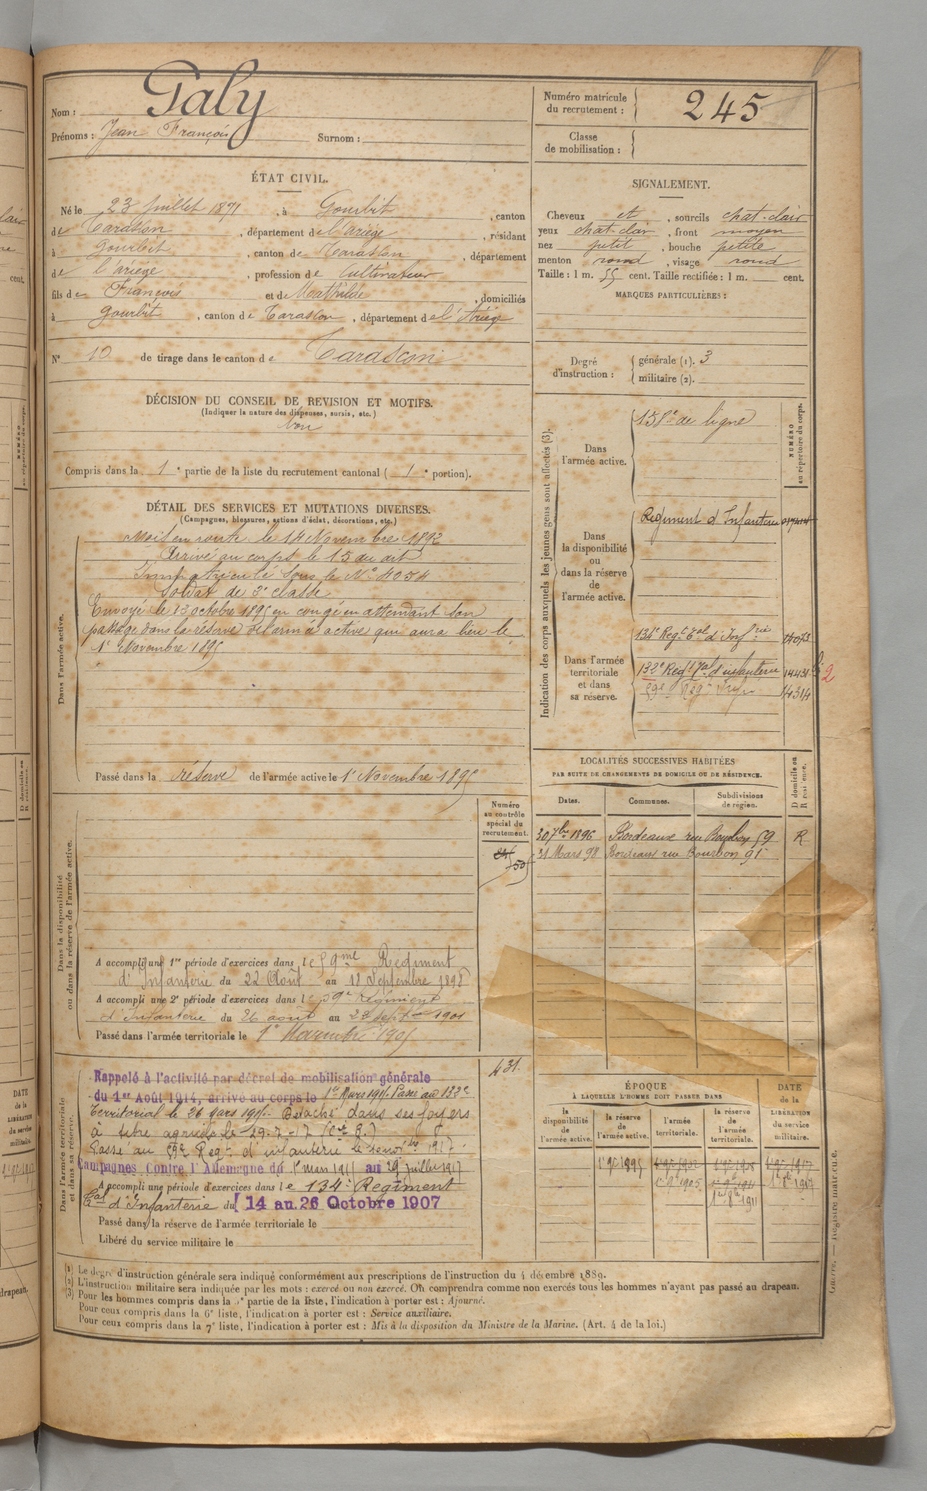 Nom : Galy
Prénoms : Jean François Surnom :
ÉTAT CIVIL.
Né le 23 Juillet 1871, à Gourbit, canton
de Tarascon, département de l'ariège, résidant
à Gourbit, canton de Tarascon, département
de l'ariège, profession de cultivateur
fils de François et de Mathilde, domiciliés
à Gourbit, canton de Tarascon, département de l'Ariège
N° 10 de tirage dans le canton de Tarascon
DÉCISION DU CONSEIL DE REVISION ET MOTIFS.
(Indiquer la nature des dispenses, sursis, etc.)
bon
Compris dans la 1e partie de la liste du recrutement cantonal (1e portion).
DÉTAIL DES SERVICES ET MUTATIONS DIVERSES.
(Campagnes, blessures, actions d'éclat, décorations, etc.)
Dans l'armée active.
Mis en route le 14 Novembre 1892
Arrivé au corps le 15 au dit
Immatriculé sous le N° 4054
Soldat de 2e classe
Envoyé le 13 octobre 1895 en congé en attendant son
passage dans la réserve de l'armée active qui aura lieu le
1er Novembre 1895
Passé dans la réserve de l'armée active le 1er Novembre 1895
Numéro au contrôle spécial du recrutement.
Dans la disponibilité ou dans la réserve de l'armée active.
A accompli une 1re période d'exercices dans le 59me Régiment
d'Infanterie du 22 Août au 18 Septembre 1898
A accompli une 2e période d'exercices dans le 59e régiment
d'Infanterie du 26 août au 22 sept 1901
Passé dans l'armée territoriale le 1er Novembre 1905
431
Dans l'armée territoriale et dans sa réserve.
Rappelé à l'activité par décret de mobilisation générale
du 1er Août 1914, arrivé au corps le 1er Mars 1915. Passé au 132e
Territorial le 26 Mars 1915. Détaché dans ses foyers
à titre agricole le 29-7-17
Passé au 59e Regt d'infanterie le
Campagnes Contre l'Allemagne du 1er mars 1915 au 29 juillet 1917
A accompli une période d'exercices dans le 134e Régiment
Tal d'Infanterie du 14 au 26 Octobre 1907
Passé dans la réserve de l'armée territoriale le
Libéré du service militaire le
Numéro matricule du recrutement : 245
Classe de mobilisation :
SIGNALEMENT.
Cheveux et, sourcils chat-clair
yeux chat-clair, front moyen
nez petit, bouche petite
menton rond, visage rond
Taille : 1 m. 55 cent. Taille rectifiée : 1 m. cent.
MARQUES PARTICULIÈRES :
Degré d'instruction : générale (1). 3
militaire (2).
Indication des corps auxquels les jeunes gens sont affectés (3).
NUMÉRO au répertoire du corps.
Dans l'armée active.
158e de ligne
Dans la disponibilité ou dans la réserve de l'armée active.
Régiment d'Infanterie
Dans l'armée territoriale et dans sa réserve.
134e Regt Tal d'Infrie
132e Regt Tal d'infanterie 14431
59e
2
LOCALITÉS SUCCESSIVES HABITÉES
PAR SUITE DE CHANGEMENTS DE DOMICILE OU DE RÉSIDENCE.
Dates. Communes. Subdivisions de région. D domicile ou R résidence.
20 7bre 1896 Bordeaux rue Bourbon 59 R
31 Mars 98 Bordeaux rue Bourbon 91
ÉPOQUE
À LAQUELLE L'HOMME DOIT PASSER DANS
DATE de la LIBÉRATION du service militaire.
la disponibilité de l'armée active. la réserve de l'armée active. l'armée territoriale. la réserve de l'armée territoriale.
(1) Le degré d'instruction générale sera indiqué conformément aux prescriptions de l'instruction du 4 décembre 1889.
(2) L'instruction militaire sera indiquée par les mots : exercé ou non exercé. On comprendra comme non exercés tous les hommes n'ayant pas passé au drapeau.
(3) Pour les hommes compris dans la 5e partie de la liste, l'indication à porter est : Ajourné.
Pour ceux compris dans la 6e liste, l'indication à porter est : Service auxiliaire.
Pour ceux compris dans la 7e liste, l'indication à porter est : Mis à la disposition du Ministre de la Marine. (Art. 4 de la loi.)